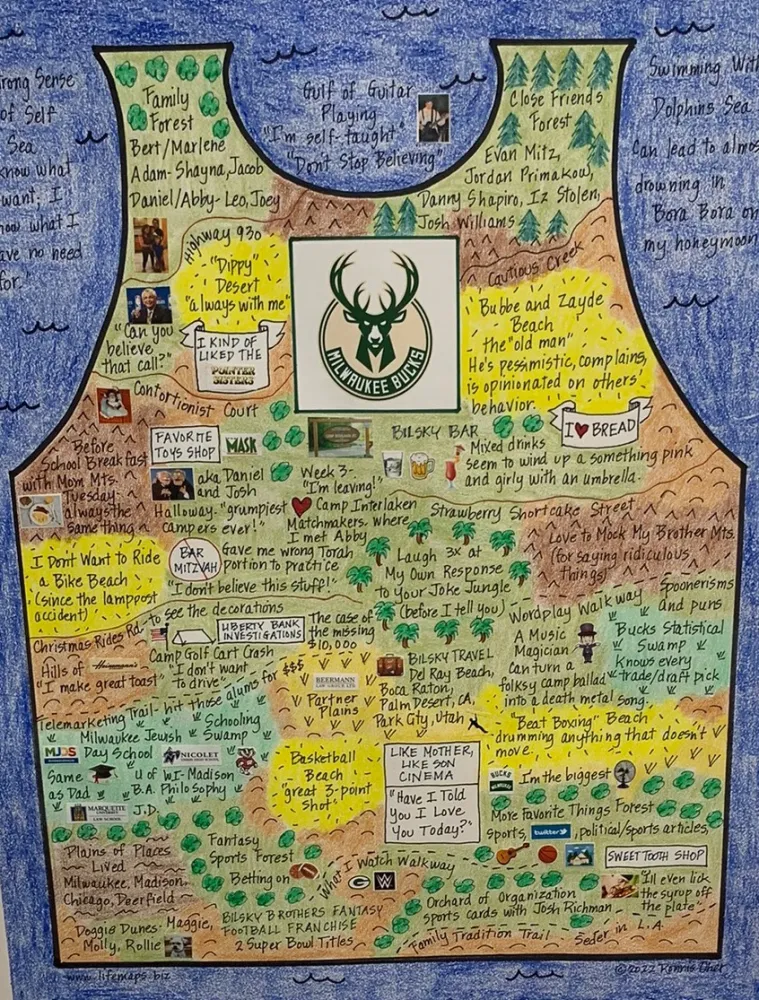 rong Sense
of Self
Sea
know what
want; I
now what I
ave no need
for."
Gulf of Guitar
Playing
"I'm self-taught"
"Don't Stop Believing"
Swimming With
Dolphins Sea
Can lead to almos
drowning in
Bora Bora on
my honeymoon
Family
Forest
Bert/Marlene
Adam-Shayna, Jacob
Daniel/Abby-Leo, Joey
Close Friends
Forest
Evan Mitz,
Jordan Primakow,
Danny Shapiro, Iz Stolen,
Josh Williams
Highway 930
"Dippy"
Desert
"always with me"
"Can you
believe
that call?"
I KIND OF
LIKED THE
POINTER
SISTERS
MILWAUKEE BUCKS
Cautious Creek
Bubbe and Zayde
Beach
the "old man"
He's pessimistic, complains,
is opinionated on others'
behavior.
I ♥ BREAD
Contortionist Court
Before
School Breakfast
with Mom Mts.
Tuesday-
always the
same thing
FAVORITE
TOYS SHOP
MASK
aka Daniel
and Josh
Halloway. "grumpiest
campers ever!"
Week 3-
"I'm leaving!"
♥ Camp Interlaken
Matchmakers where
I met Abby
BILSKY BAR
Mixed drinks
seem to wind up a something pink
and girly with an umbrella.
Strawberry Shortcake Street
Love to Mock My Brother Mts.
(for saying ridiculous
things)
I Dont Want to Ride
a Bike Beach
(since the lamppost
accident)
BAR
MITZVAH
Gave me wrong Torah
portion to practice
"I don't believe this stuff!"
Laugh 3x at
My Own Response
to Your Joke Jungle
(before I tell you)
Christmas Rides Rd.- to see the decorations
Hills of
"I make great toast"
Camp Golf Cart Crash
"I don't want
to drive"
LIBERTY BANK
INVESTIGATIONS
The case of
the missing
$10,000
Wordplay Walkway
Spoonerisms
and puns
A Music
Magician
Can turn a
folksy camp ballad
into a death metal song.
Bucks Statistical
Swamp
Knows every
trade/draft pick
Telemarketing Trail- hit those alums for $$$
BEERMANN
LAW GROUP LTD.
Partner
Plains
BILSKY TRAVEL
Del Ray Beach,
Boca Raton,
Palm Desert, CA,
Park City, Utah
"Beat Boxing" Beach
drumming anything that doesn't
move.
Schooling
Swamp
Milwaukee Jewish
MJDS Day School
NICOLET
Same
as Dad
U of WI-Madison
B.A. Philosophy
MARQUETTE
UNIVERSITY
LAW SCHOOL
J.D.
Basketball
Beach
"great 3-point
shot"
LIKE MOTHER,
LIKE SON
CINEMA
"Have I Told
You I Love
You Today?"
BUCKS
I'm the biggest
More Favorite Things Forest
sports, twitter, political/sports articles,
SWEET TOOTH SHOP
"I'll even lick
the syrup off
the plate"
Plains of Places
Lived
Milwaukee, Madison,
Chicago, Deerfield
Fantasy
Sports Forest
Betting on
What I Watch Walkway
G W
Orchard of Organization
sports cards with Josh Richman
Doggie Dunes- Maggie,
Molly, Rollie
BILSKY BROTHERS FANTASY
FOOTBALL FRANCHISE
2 Super Bowl Titles
Family Tradition Trail Seder in L.A.
www.lifemaps.biz
©2022 Ronnie Cher